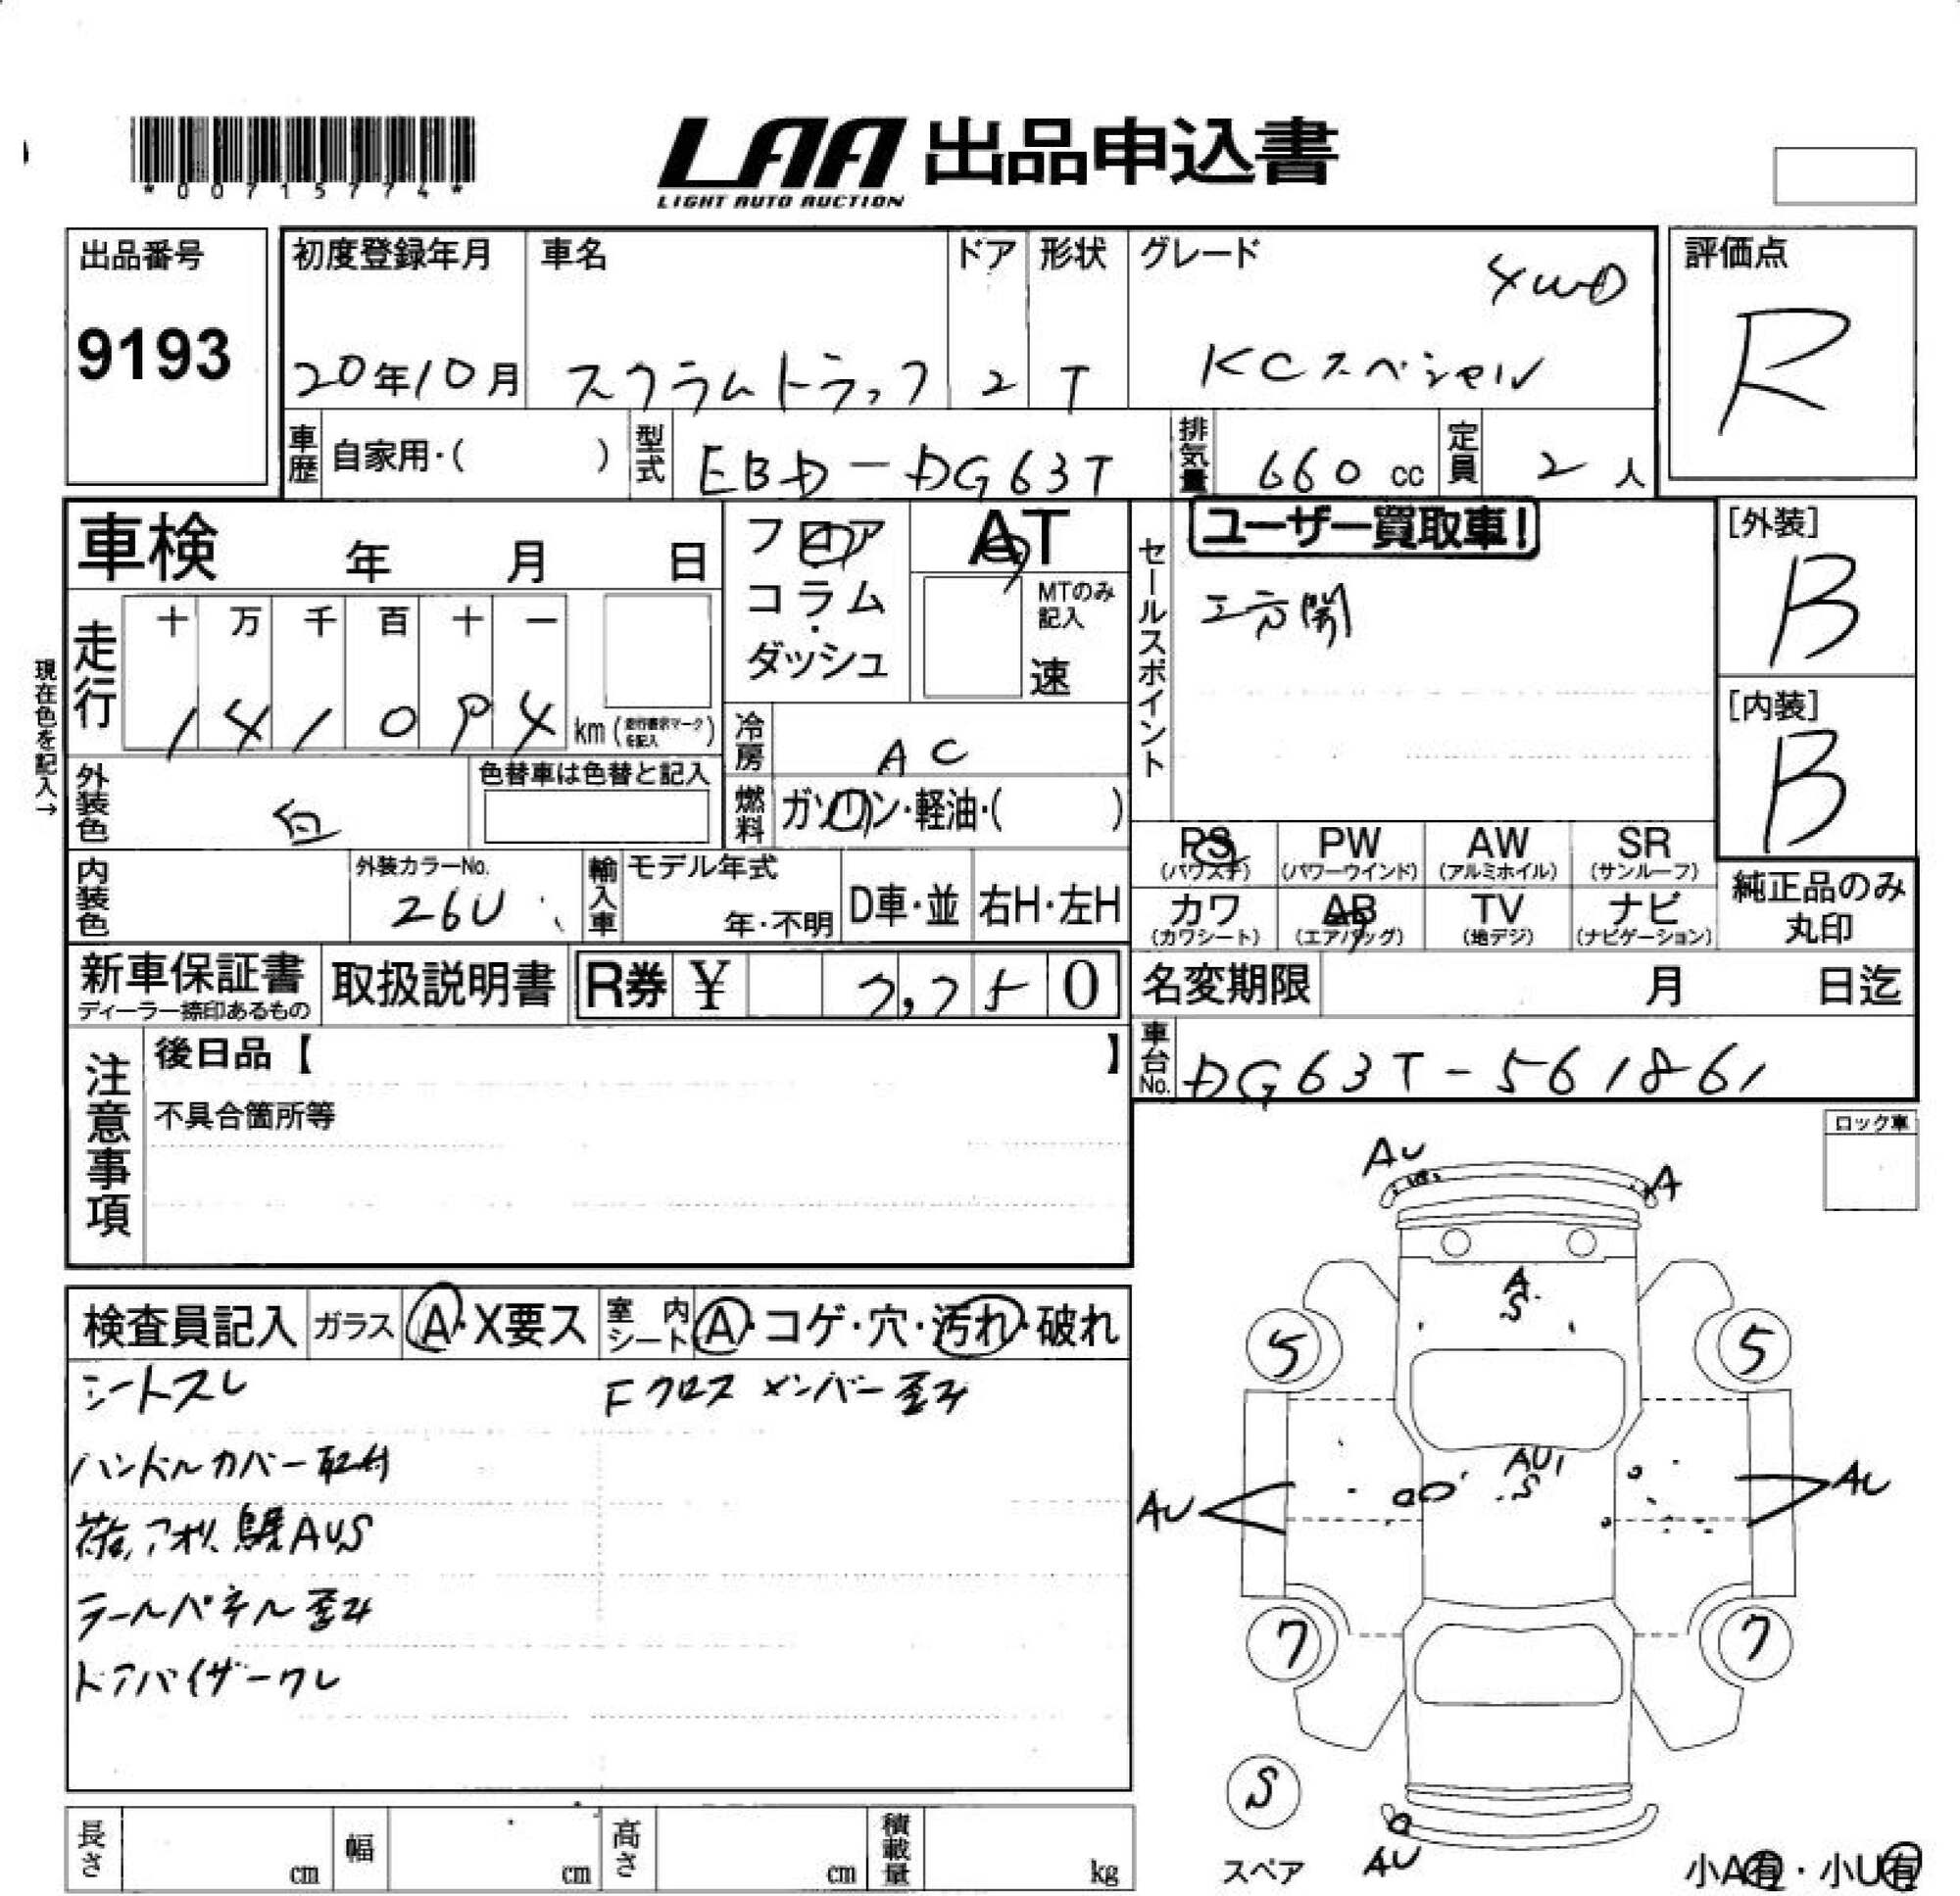 *00715774*
LAA 出品申込書
LIGHT AUTO AUCTION
出品番号
9193
初度登録年月
20年10月
車名
スクラムトラック
ドア
2
形状
T
グレード
4WD
KCスペシャル
評価点
R
車歴 自家用・( )
型式 EBD-DG63T
排気量 660 cc
定員 2 人
車検 年 月 日
フロア
コラム
・
ダッシュ
AT
MTのみ
記入
速
セールスポイント
ユーザー買取車!
三方開
[外装]
B
[内装]
B
現在色を記入→
走行
十 万 千 百 十 一
1 4 1 0 9 4 km (走行書示マークを記入)
冷房 AC
燃料 ガソリン・軽油・( )
外装色 白
色替車は色替と記入
内装色
外装カラーNo.
26U
輸入車
モデル年式
年・不明
D車・並
右H・左H
PS
(パワステ)
PW
(パワーウインド)
AW
(アルミホイル)
SR
(サンルーフ)
カワ
(カワシート)
AB
(エアバッグ)
TV
(地デジ)
ナビ
(ナビゲーション)
純正品のみ
丸印
新車保証書
ディーラー捺印あるもの
取扱説明書
R券 ¥ 7,750
名変期限 月 日迄
車台No. DG63T-561861
注意事項
後日品【 】
不具合箇所等
ロック車
検査員記入
ガラス A・X要ス
室内シート A・コゲ・穴・汚れ・破れ
シートスレ
Fクロスメンバー歪み
ハンドルカバー取付
荷台、アオリ、鳥居AUS
テールパネル歪み
ドアバイザーワレ
AU
A
A
S
5
5
AU1
S
AU
AU
7
7
S
スペア
AU
小A有・小U有
長さ cm
幅 cm
高さ cm
積載量 kg